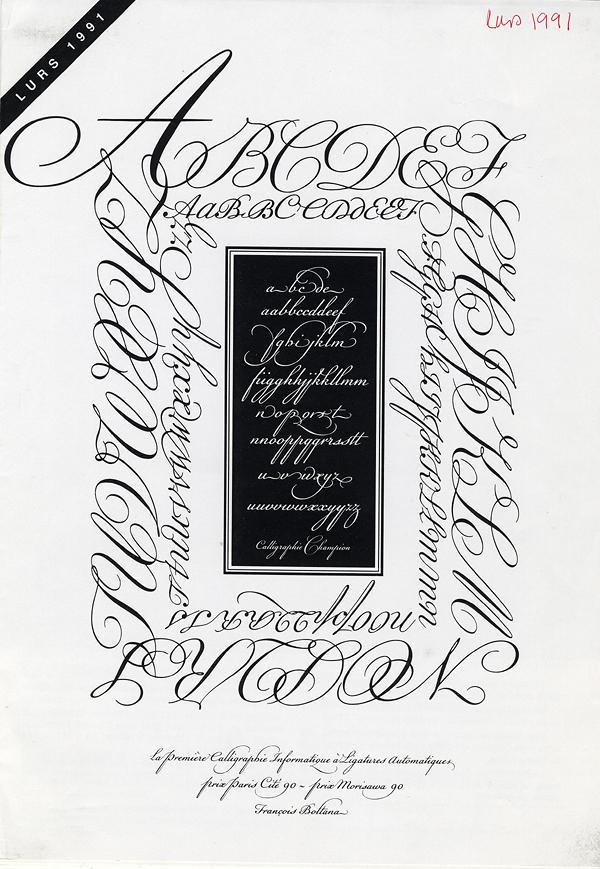 LURS 1991
Lurs 1991
ABCDEF
AaBBCCDdEEF
GHIJKLM
NOPQRS
TUVWXYZ
a bc de
aabbccddeef
fghijklm
fiigghhjjkkllmm
nopqrst
nnooppqqrrsstt
u v wxyz
uuvvwwxxyyzz
Calligraphie Champion
La Première Calligraphie Informatique à Ligatures Automatiques
prix Paris Cité 90 ~ prix Morisawa 90
François Boltana